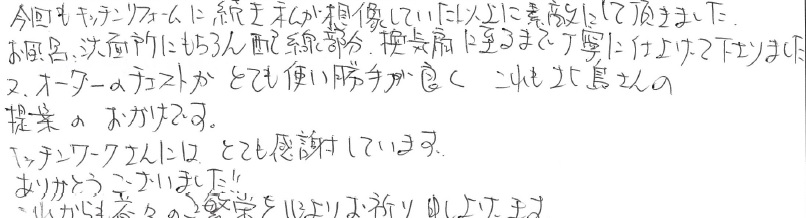 今回もキッチンリフォームに続き私が想像していた以上に素敵にして頂きました。
お風呂、洗面所にもちろん配線部分、換気扇に至るまで丁寧に仕上げて下さりました
又、オーダーのチェストがとても使い勝手が良く これも北島さんの
提案のおかげです。
キッチンワークさんには、とても感謝しています。
ありがとうございました!!
これからも益々のご繁栄を心よりお祈り申し上げます